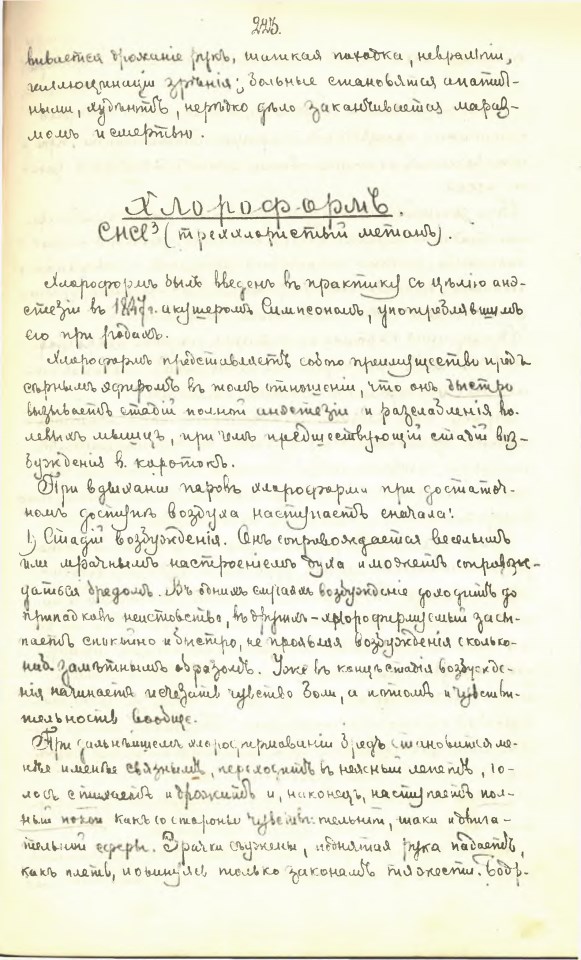 223.
вивается дрожаніе рукъ, шаткая походка, невралгіи,
галлюцинаціи зрѣнія; больные становятся апатич-
ными, худѣютъ, нерѣдко дѣло заканчивается мараз-
момъ и смертью.
Хлороформъ.
CHCl³ (треххлористый метанъ).
Хлороформъ былъ введенъ въ практику съ цѣлію анэ-
стезіи въ 1847 г. акушеромъ Симпсономъ, употреблявшимъ
его при родахъ.
Хлороформъ представляетъ собою преимущество предъ
сѣрнымъ эфиромъ въ томъ отношеніи, что онъ быстро
вызываетъ стадій полной анэстезіи и разслабленія во-
левыхъ мышцъ, при чемъ предшествующій стадій воз-
бужденія коротокъ.
При вдыханіи паровъ хлороформа при достаточ-
номъ доступѣ воздуха наступаетъ сначала:
1) Стадій возбужденія. Онъ сопровождается веселымъ
или мрачнымъ настроеніемъ духа и можетъ сопровож-
даться бредомъ. Въ однихъ случаяхъ возбужденіе доходитъ до
припадковъ неистовства, въ другихъ – хлороформируемый засы-
паетъ спокойно и быстро, не проявляя возбужденія сколько-
нибудь замѣтнымъ образомъ. Уже въ концѣ стадія возбужде-
нія начинаетъ исчезать чувство боли, а потомъ и чувстви-
тельность вообще.
При дальнѣйшемъ хлороформированіи бредъ становится ме-
нѣе и менѣе связнымъ, переходитъ въ неясный лепетъ, го-
лосъ стихаетъ и дрожитъ и, наконецъ, наступаетъ пол-
ный покой какъ со стороны чувствительной, такъ и двига-
тельной сферы. Зрачки съужены, поднятая рука падаетъ,
какъ плеть, повинуясь только законамъ тяжести. Бодр-